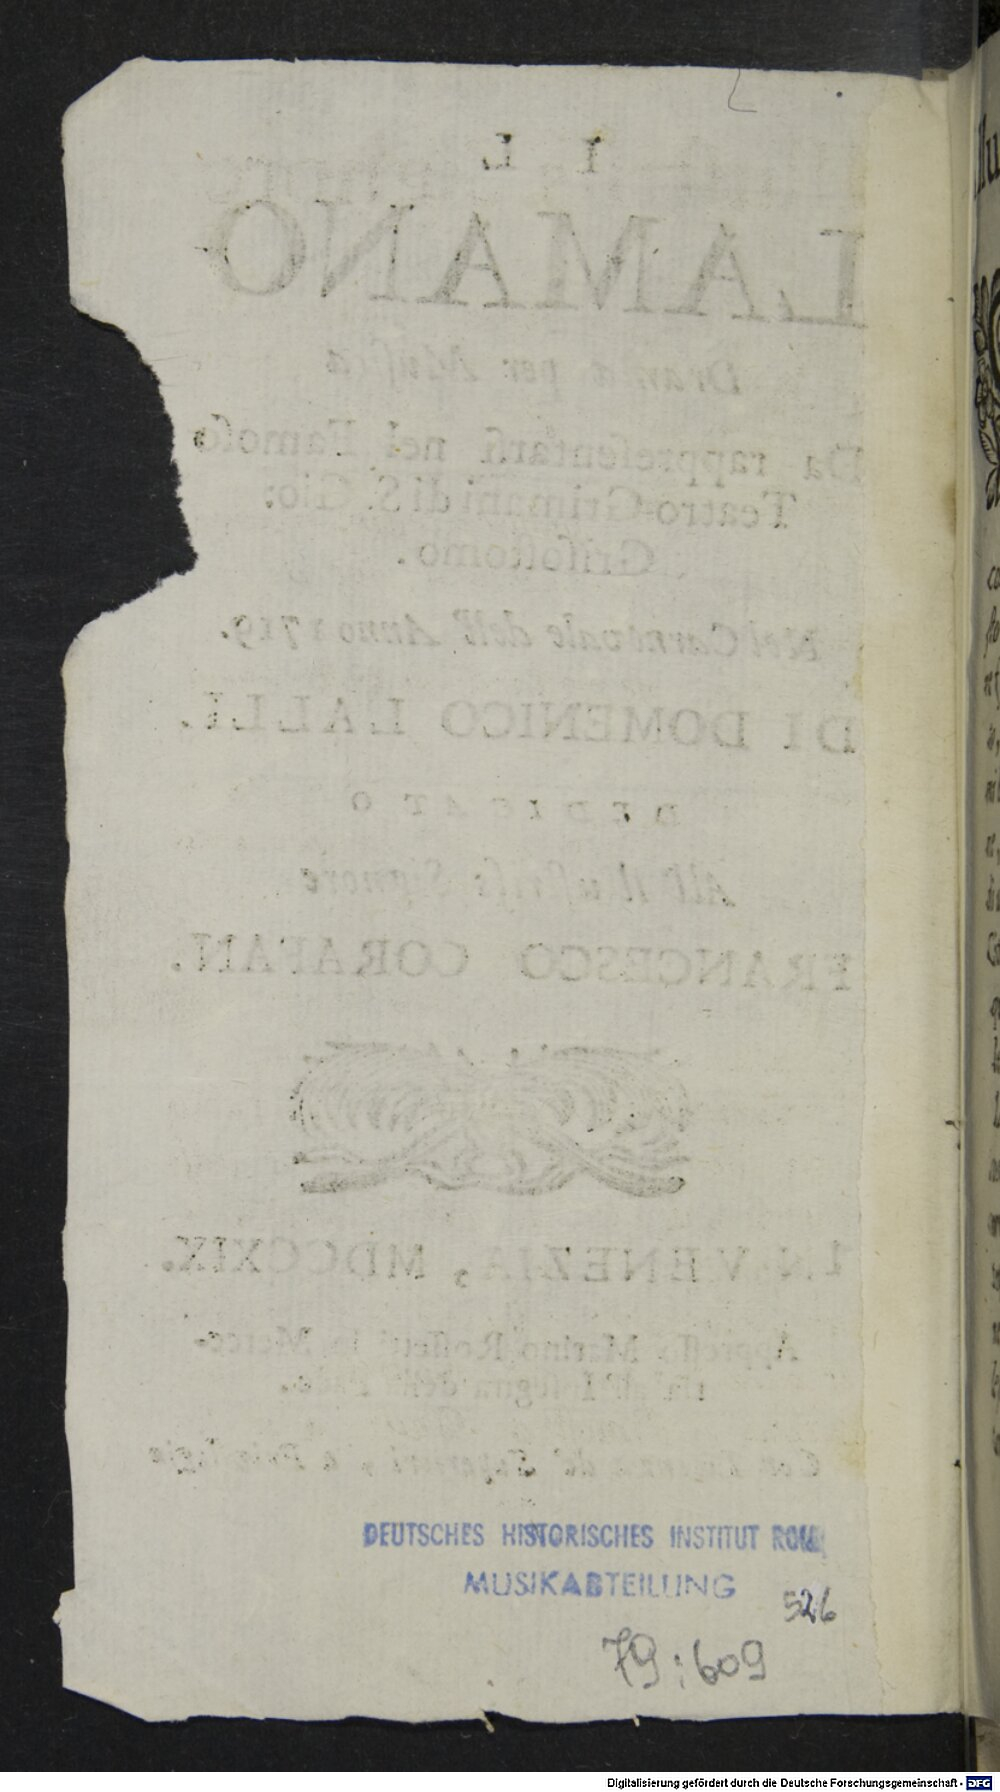 I L
LAMANO
Drama per Musica
Da rappresentarsi nel Famoso
Teatro Grimani di S. Gio:
Grisostomo.
Nel Carnovale dell' Anno 1719.
DI DOMENICO LALLI.
DEDICATO
All' Illustriss. Signore
FRANCESCO CORAFAN.
IN VENEZIA, MDCCXIX.
Appresso Marino Rossetti in Merce-
ria all' Insegna della Pace.
Con Licenza de' Superiori, e Privilegio
DEUTSCHES HISTORISCHES INSTITUT ROM
MUSIKABTEILUNG
526
79:609
Digitalisierung gefördert durch die Deutsche Forschungsgemeinschaft - DFG